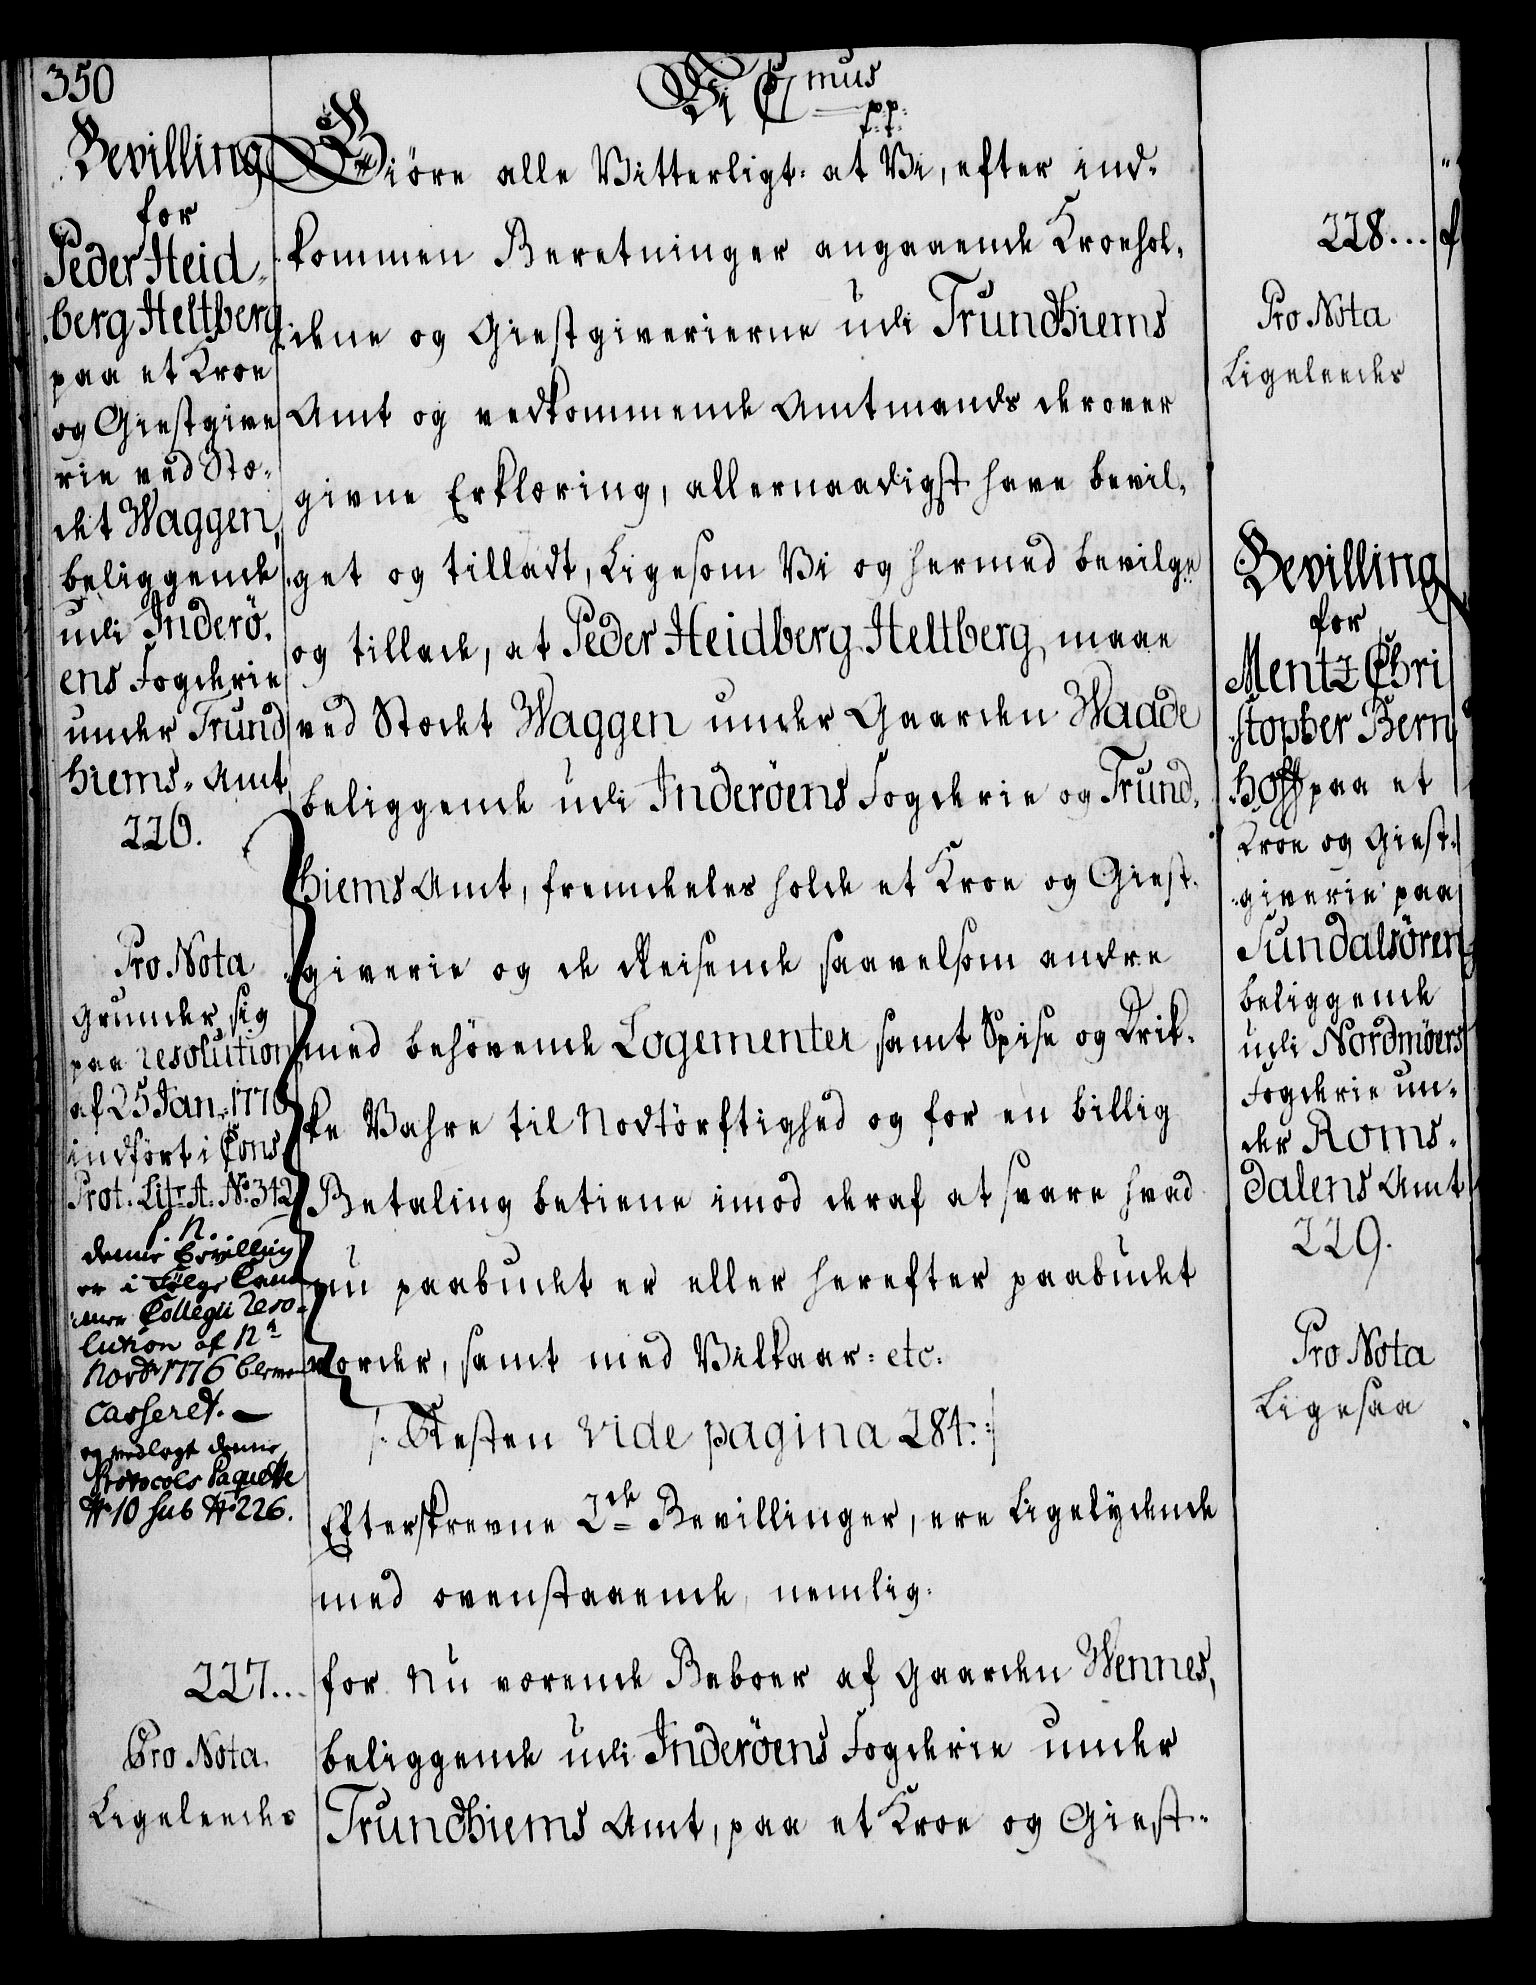 350
Vi C7mus
p.p.
t.t.
Bevilling
for
Peder Heid-
berg Heltberg
paa et Kroe
og Giestgive
rie ved Stæ-
det Waggen,
beliggende
udi Inderö-
ens Fogderie
under Trund
hiems- Amt
226.
Pro Nota
grunder sig
paa resolution
af 25 Jan. 1776
indfört i Cons.
Prot. Litr. A. No. 342
denne Bevilling
er i Følge Cam
mer Collegii reso-
lution af
Novbr 1776 bleven
Casseret. —
og vedlagt denne
Protocols Paquette
No 10 sub No 226.
Giöre alle Vitterligt: at Vi, efter ind-
kommen Beretninger angaaende Kroehol-
dene og Giestgiverierne udi Trundhiems
Amt og vedkommende Amtmands derover
givne Erklæring, allernaadigst have bevil-
get og tilladt, Ligesom Vi og hermed bevilge
og tillade, at Peder Heidberg Heltberg, maae
ved Stædet Waggen under Gaarden Waade
beliggende udi Inderöens Fogderie og Trund-
hiems Amt, fremdeeles holde et Kroe og Giest-
giverie og de Reisende saavelsom andre
med behövende Logementer samt Spise og Drik-
ke Vahre til Nodtörftighed og for en billig
Betaling betiene imod deraf at svare hvad
nu paabudet er eller herefter paabudet
vorder, samt med Vilkaar: etc.
/: Resten vide pagina 284. :/
Efterskrevne 2de Bevillinger, ere Ligelydende
med ovenstaaende, nemlig.
227...
Pro Nota.
Ligeleedes
for Nu værende Beboer af Gaarden Wennes,
beliggende udi Inderöens Fogderie under
Trundhiems Amt, paa et Kroe og Giest-
228...
Pro Nota
Ligeleedes
Bevilling
for
Mentz Chri
stopher Bern
hoff paa et
Kroe og Giest-
giverie paa
Sundalsören
beliggende
udi Nordmöers
Fogderie un-
der Roms-
dalens Amt
229.
Pro Nota
Ligesaa